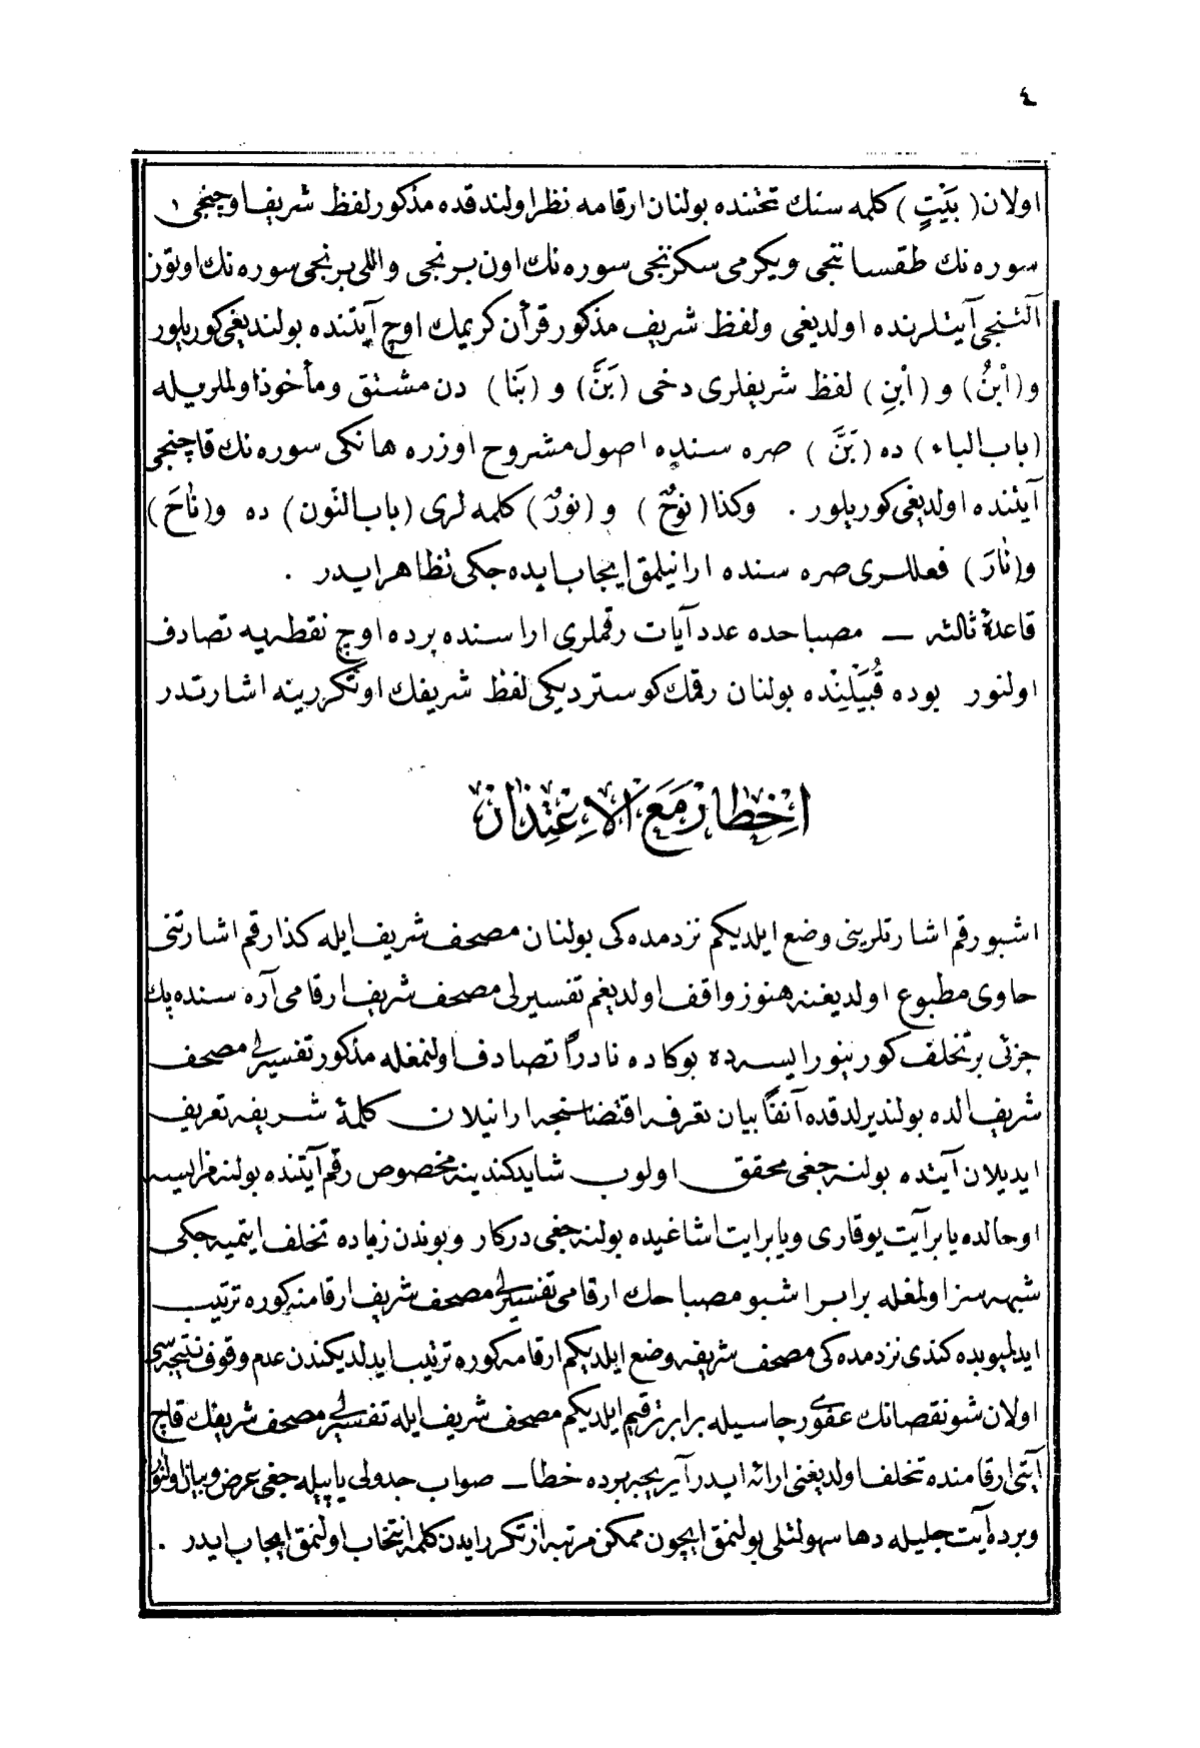 ٤
اولان ( بَيْتٍ ) كلمه سنك تحتنده بولنان ارقامه نظر اولندقده مذكور لفظ شريف اوچنجى
سوره نك طقسا ننجى ويكرمى سكزنجى سوره نك اون برنجى واللى برنجى سوره نك اوتوز
آلتنجى آيتلرنده اولديغى ولفظ شريف مذكور قرأن كريمك اوچ آيتنده بولنديغى كوريلور
و ( اْبنُ ) و ( اْبنِ ) لفظ شريفلرى دخى ( بَنَّ ) و ( بَنَا ) دن مشتق ومأخوذ اولملريله
( باب الباء ) ده ( بَنَّ ) صره سنده اصول مشروح اوزره هانكى سوره نك قاچنجى
آيتنده اولديغى كوريلور . وكذا ( نوُحٌ ) و ( نورٌ ) كلمه لرى ( باب النّون ) ده و ( نٰاحَ )
و ( نٰارَ ) فعللرى صره سنده ارانيلمق ايجاب ايده جكى تظاهر ايدر .
قاعدۀ ثالثه — مصباحده عدد آيات رقملرى اراسنده برده اوچ نقطه يه تصادف
اولنور بوده قُبَيْلِنْده بولنان رقمك كوستر ديكى لفظ شريفك او تكررينه اشارتدر
اِخْطَار مَعَ الْاِعْتِذَار
اشبو رقم اشارتلرينى وضع ايلديكم نزدمده كى بولنان مصحف شريف ايله كذا رقم اشارتنى
حاوى مطبوع اولديغنه هنوز واقف اولديغم تفسيرلى مصحف شريف ارقامى آره سنده پك
جزئى بر تخلف كورينور ايسه ده بوكا ده نادراً تصادف اولنمغله مذكور تفسيرلى مصحف
شريف الده بولنديرلدقده آنفاً بيان تعرفه اقتضاسنجه ارانيلان كلمۀ شريفه تعريف
ايديلان آيتده بولنه جغى محقق اولوب شايد كندينه مخصوص رقم آيتنده بولنه مز ايسه
او حالده يا بر آيت يوقارى ويا بر ايت اشاغيده بولنه جغى دركار وبوندن زياده تخلف ايتميه جكى
شبهه سز اولمغله برابر اشبو مصباحك ارقامى تفسيرلى مصحف شريف ارقامنه كوره ترتيب
ايدلميوبده كندى نزدمده كى مصحف شريفه وضع ايلديكم ارقامه كوره ترتيب ايدلديكندن عدم وقوف نتيجه سى
اولان شو نقصانك عفوى رجاسيله برابر ترقيم ايلديكم مصحف شريف ايله تفسيرلى مصحف شريفك قاچ
آيتى ارقامنده تخلف اولديغنى ارائه ايدر آيريجه برده خطا — صواب جدولى ياپيله جغى عرض وبيان اولنور
وبرده آيت جليله دها سهولتلى بولنمق ايچون ممكن مرتبه از تكرر ايدن كلمه انتخاب اولنمق ايجاب ايدر .